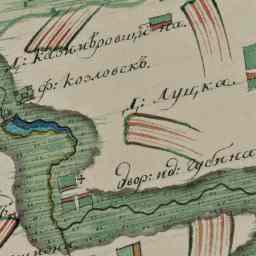 д: казимировщизна
ф: козловскъ
д: Луцка
двор: нд: чубина